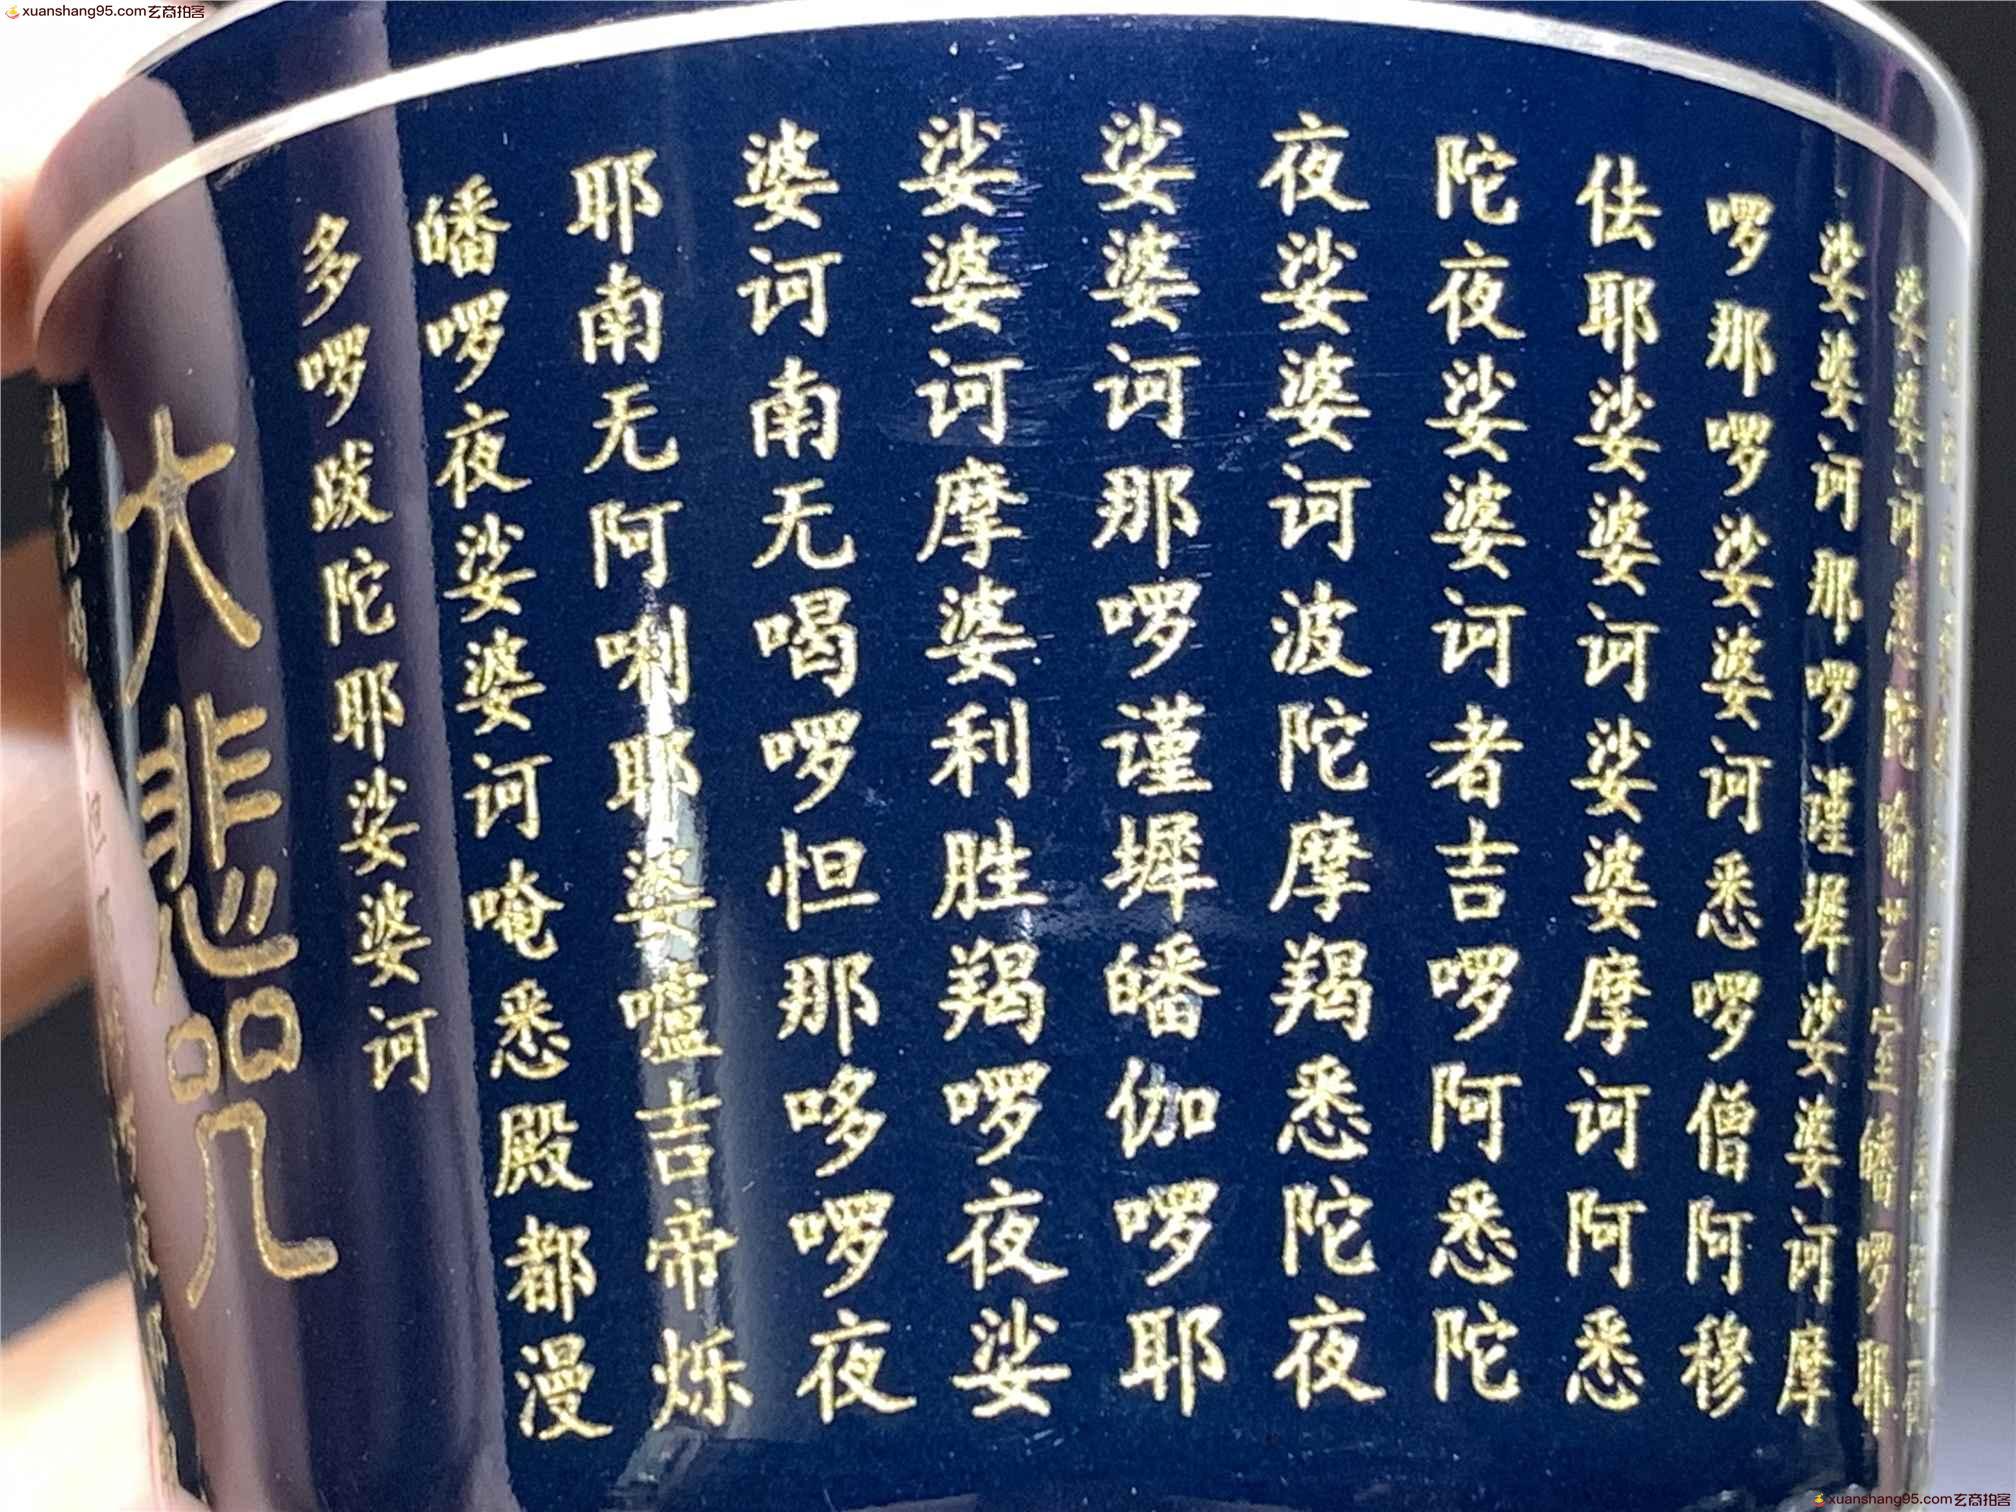 娑婆诃悉陀喻艺室皤啰耶
娑婆诃那啰谨墀娑婆诃摩
啰那啰娑婆诃悉啰僧阿穆
佉耶娑婆诃娑婆摩诃阿悉
陀夜娑婆诃者吉啰阿悉陀
夜娑婆诃波陀摩羯悉陀夜
娑婆诃那啰谨墀皤伽啰耶
娑婆诃摩婆利胜羯啰夜娑
婆诃南无喝啰怛那哆啰夜
耶南无阿唎耶婆嚧吉帝烁
皤啰夜娑婆诃唵悉殿都漫
多啰跋陀耶娑婆诃
大悲咒
xuanshang95.com玄商拍客
xuanshang95.com玄商拍客